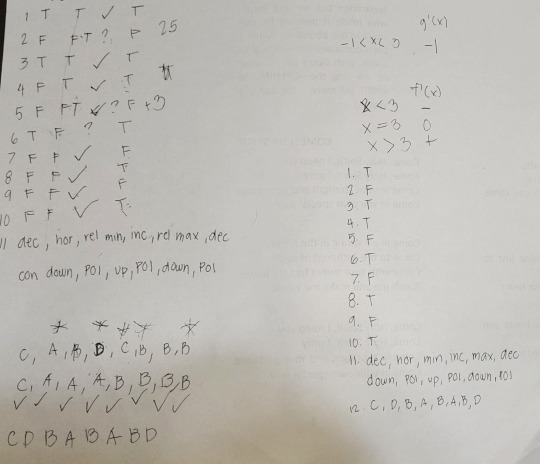 1 T T ✓ T
2 F F T ? F 25
3 T T ✓ T
4 F T ✓ T
5 F F T ✓ ? F +3
6 T F ? T
7 F F ✓ F
8 F F ✓ T
9 F F ✓ F
10 F F ✓ T
11 dec, hor, rel min, inc, rel max, dec
con down, POI, up, POI, down, POI
C, A, B, D, C, B, B, B
C, A, A, A, B, B, B, B
✓ ✓ ✓ ✓ ✓ ✓ ✓
C D B A B A B D
g'(x)
-1 < x < 3 -1
f'(x)
x < 3 -
x = 3 0
x > 3 +
1. T
2 F
3 T
4. T
5. F
6. T
7. F
8. T
9. F
10. T
11. dec, hor, min, inc, max, dec
down, POI, up, POI, down, POI
12. C, D, B, A, B, A, B, D